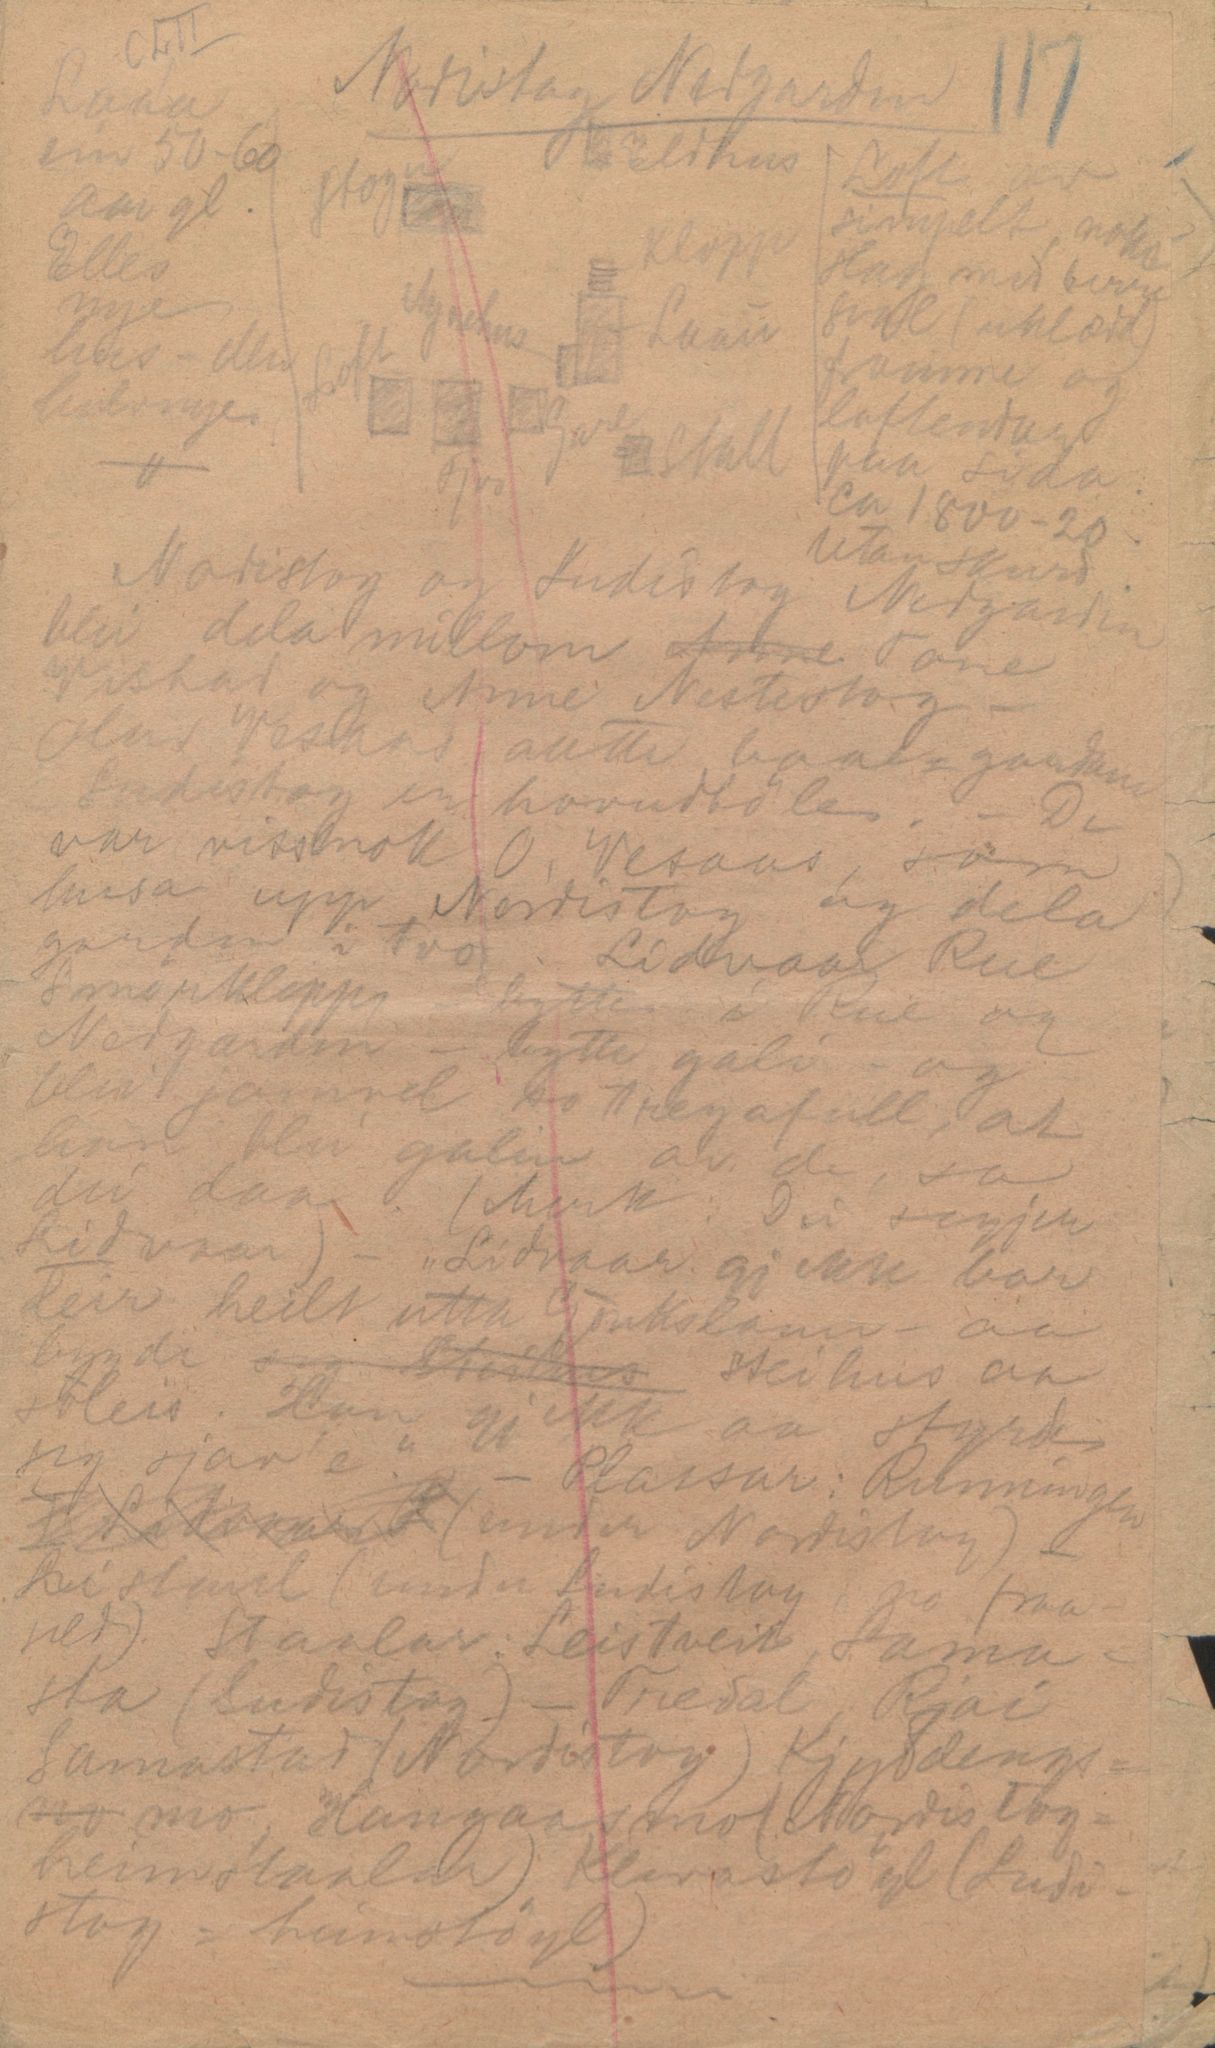 CLII
Nordistog Nedgarden
117
Laaa
ein 50-60
aar gl.
Elles
nye
hus - den
heilenye.
Stogu
Eldhus
Klopp
Laaii
Loft
Stall
Loft
simpelt, noko
slag med berre
sval (uklædd)
framme og
loftendar
paa sida.
Ca 1800-20.
Utan skurd.
Nordistog og Sudistog Nedgarden
blei dela millom Tone
Veskad og Anne Nestestog -
Olav Veskad aatte baae gardane
Sudistog er hovudbøle. - De
var vissnok O. Vesaas, som
husa upp Nordistog og dela
garden i tvo. Lidvaar Rue
Smørklepp - bytte i Rue og
Nedgarden - bytte gali - og
blei jamvel so tregafull, at
han blei galen av de, sa
dei daa. (Merk: Dei segjer
Lidvaar) - "Lidvaar gjekk bar
leir heilt utta Gonkslann - aa
bygde steihus aa
soleis. Han gjekk aa styrde
seg sjav'e." - Plassar: Runningen
(under Nordistog) -
Leistveil (under Sudistog, no fraa-
seld). Staular: Leistveit, Sama-
sta (Sudistog) - Tredal, Rjai
Samastad (Nordistog) Kjyddengs=
mo, Hangaasmo (Nordistog=
heimstaular) Klevastøyl (Sudi-
stog = heimstøyl)